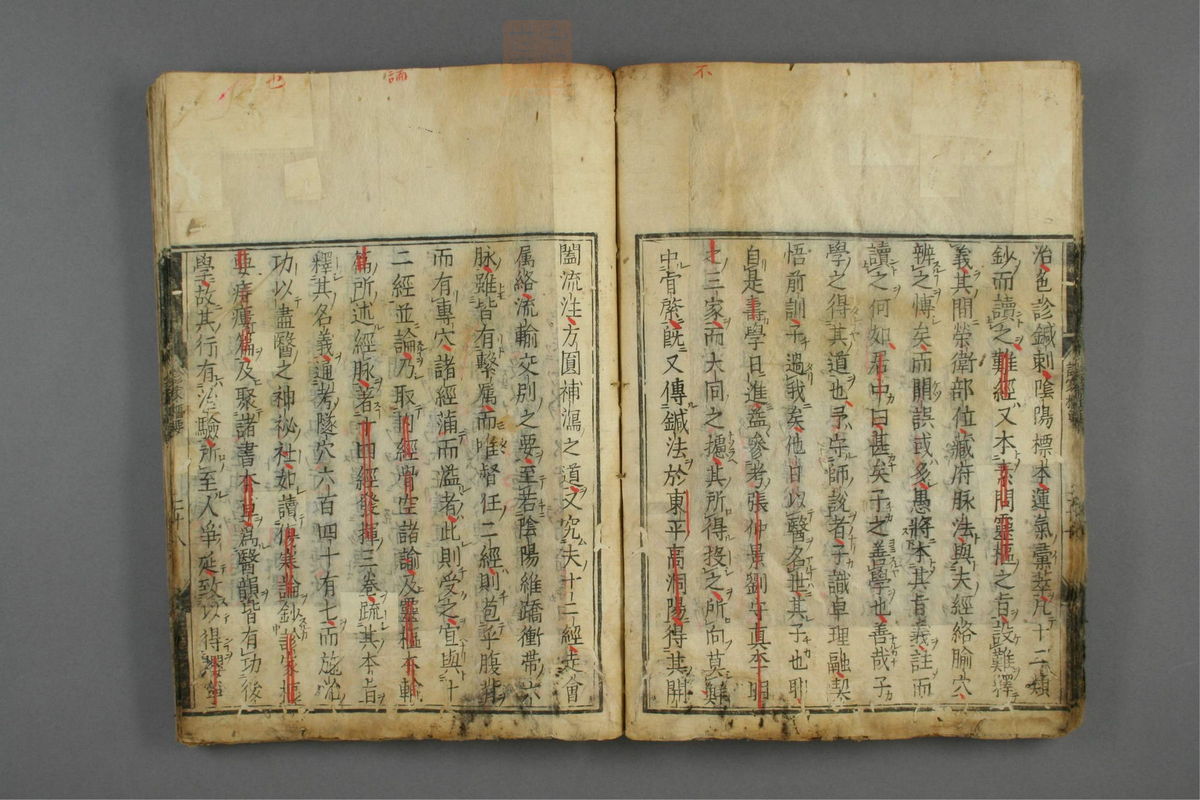 不
治色診鍼刺陰陽標本運氣彙萃凡十二類
鈔而讀之難經又本素問靈樞之旨設難釋
義其間榮衛部位藏府脉法與夫經絡腧穴
辨之博矣而闕誤或多愚將本其旨義註而
讀之何如居中曰甚矣子之善學也善哉子
學之得其道也予守師說者子識卓理融契
悟前訓子過我矣他日以醫名世其子也耶
自是壽學日進益參考張仲景劉守真李明
之三家而大同之據其所得投之所向莫
中肯綮既又傳鍼法於東平高洞陽得其開
闔流注方圓補瀉之道又究夫十二經走會
属絡流輸交別之要至若陰陽維蹻衝帶六
脉雖皆有繫属而唯督任二經則苞乎腹背
而有專穴諸經滿而溢者此則受之宜與十
二經並論乃取内經骨空諸論及靈樞本輸
篇所述經脉著十四經發揮三卷疏其本旨
釋其名義通考隧穴六百四十有七而施治
功以盡醫之神祕社如讀傷寒論鈔診家樞
要痔瘻篇及聚諸書本草爲醫韻皆有功後
學故其行有治驗所至人爭延致以得
論
也